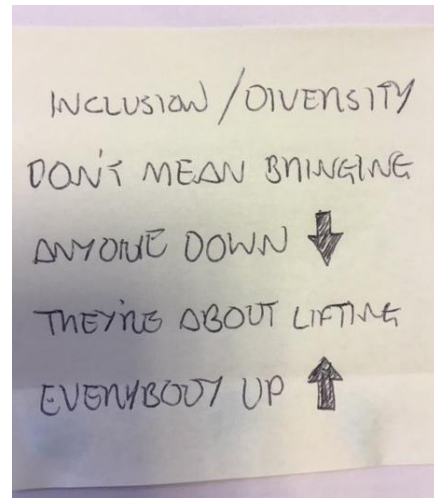 INCLUSION / DIVERSITY
DON'T MEAN BRINGING
ANYONE DOWN ⬇
THEY'RE ABOUT LIFTING
EVERYBODY UP ⬆